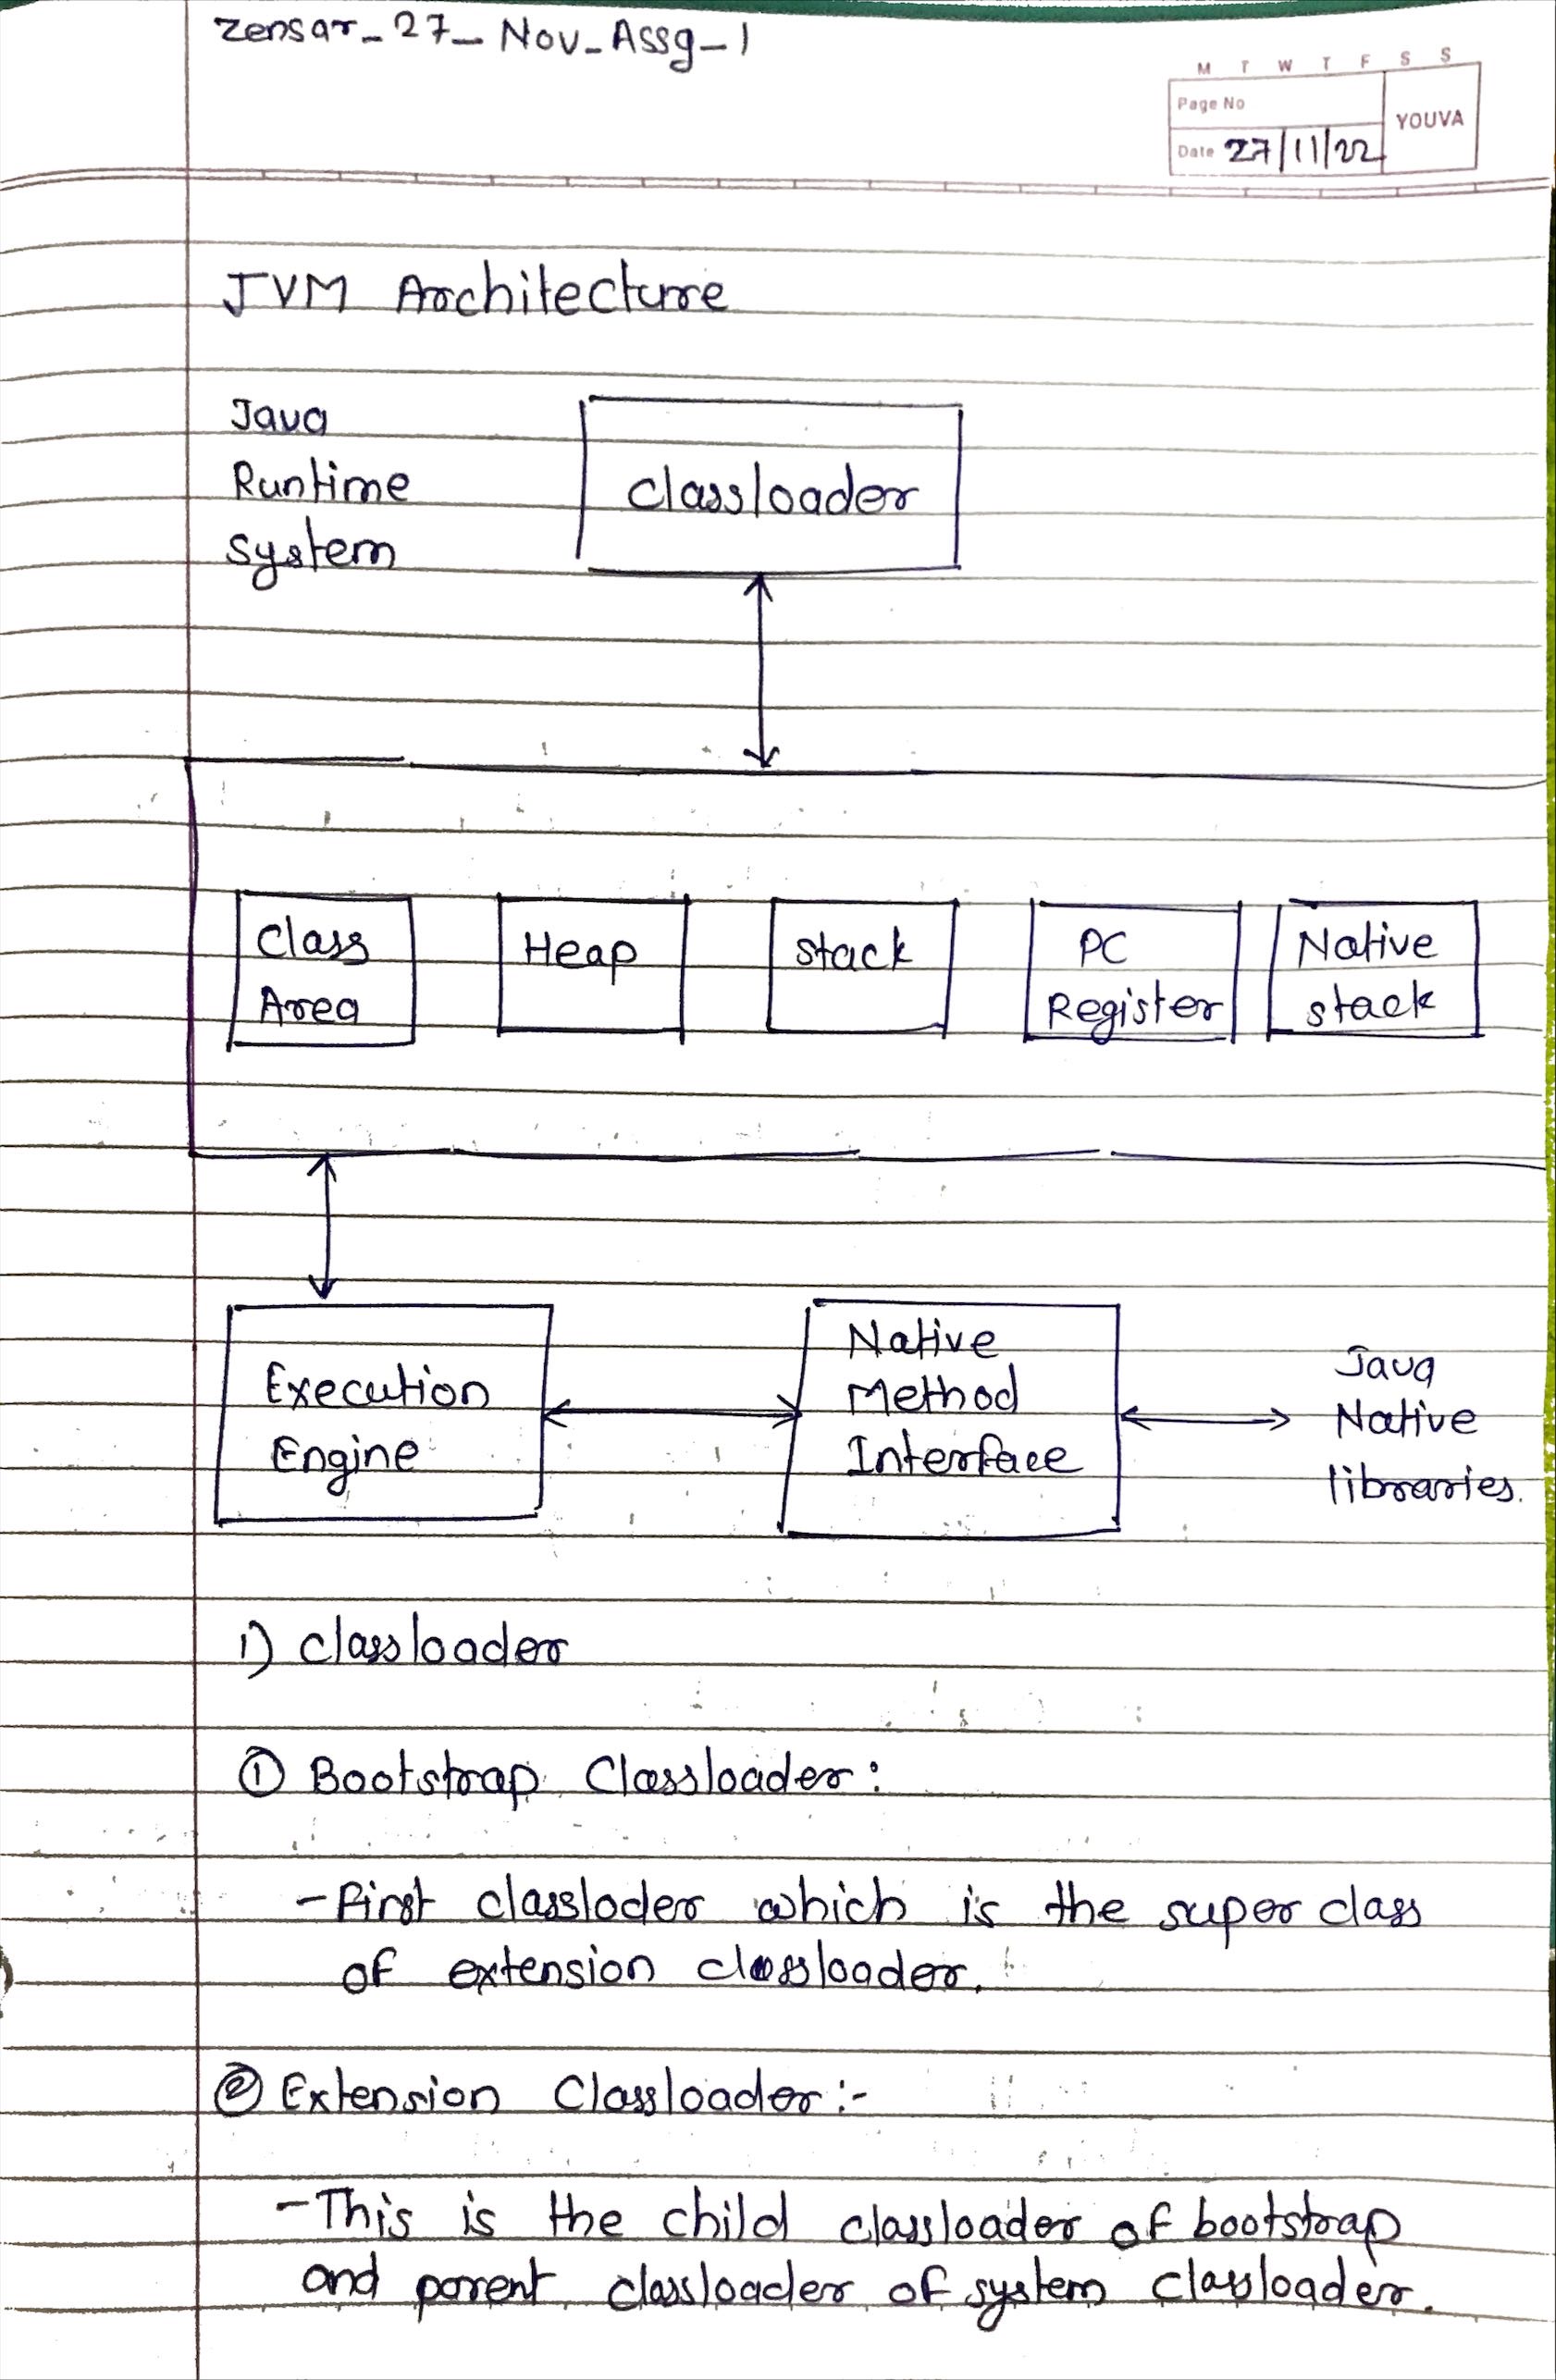 Zensar_27_Nov_Assg_1
M T W T F S S
Page No
YOUVA
Date 27/11/22
JVM Architecture
Java
Runtime
system
classloader
Class
Area
Heap
stack
PC
Register
Native
stack
Execution
Engine
Native
Method
Interface
Java
Native
libraries.
1) classloader
① Bootstrap Classloader:
- First classloder which is the super class
of extension classloader.
② Extension Classloader:-
- This is the child classloader of bootstrap
and parent classloader of system classloader.